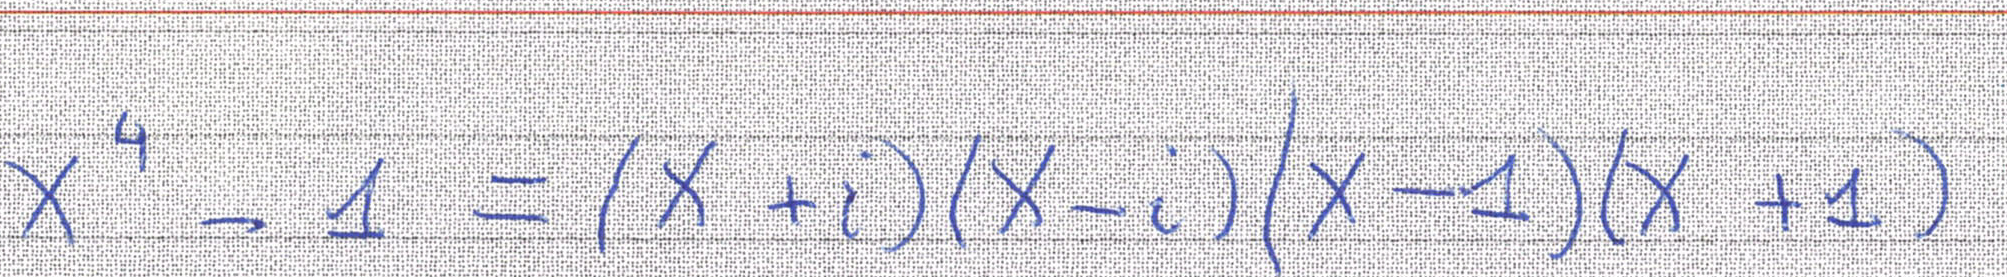 x⁴ - 1 = (x + i)(x - i)(x - 1)(x + 1)